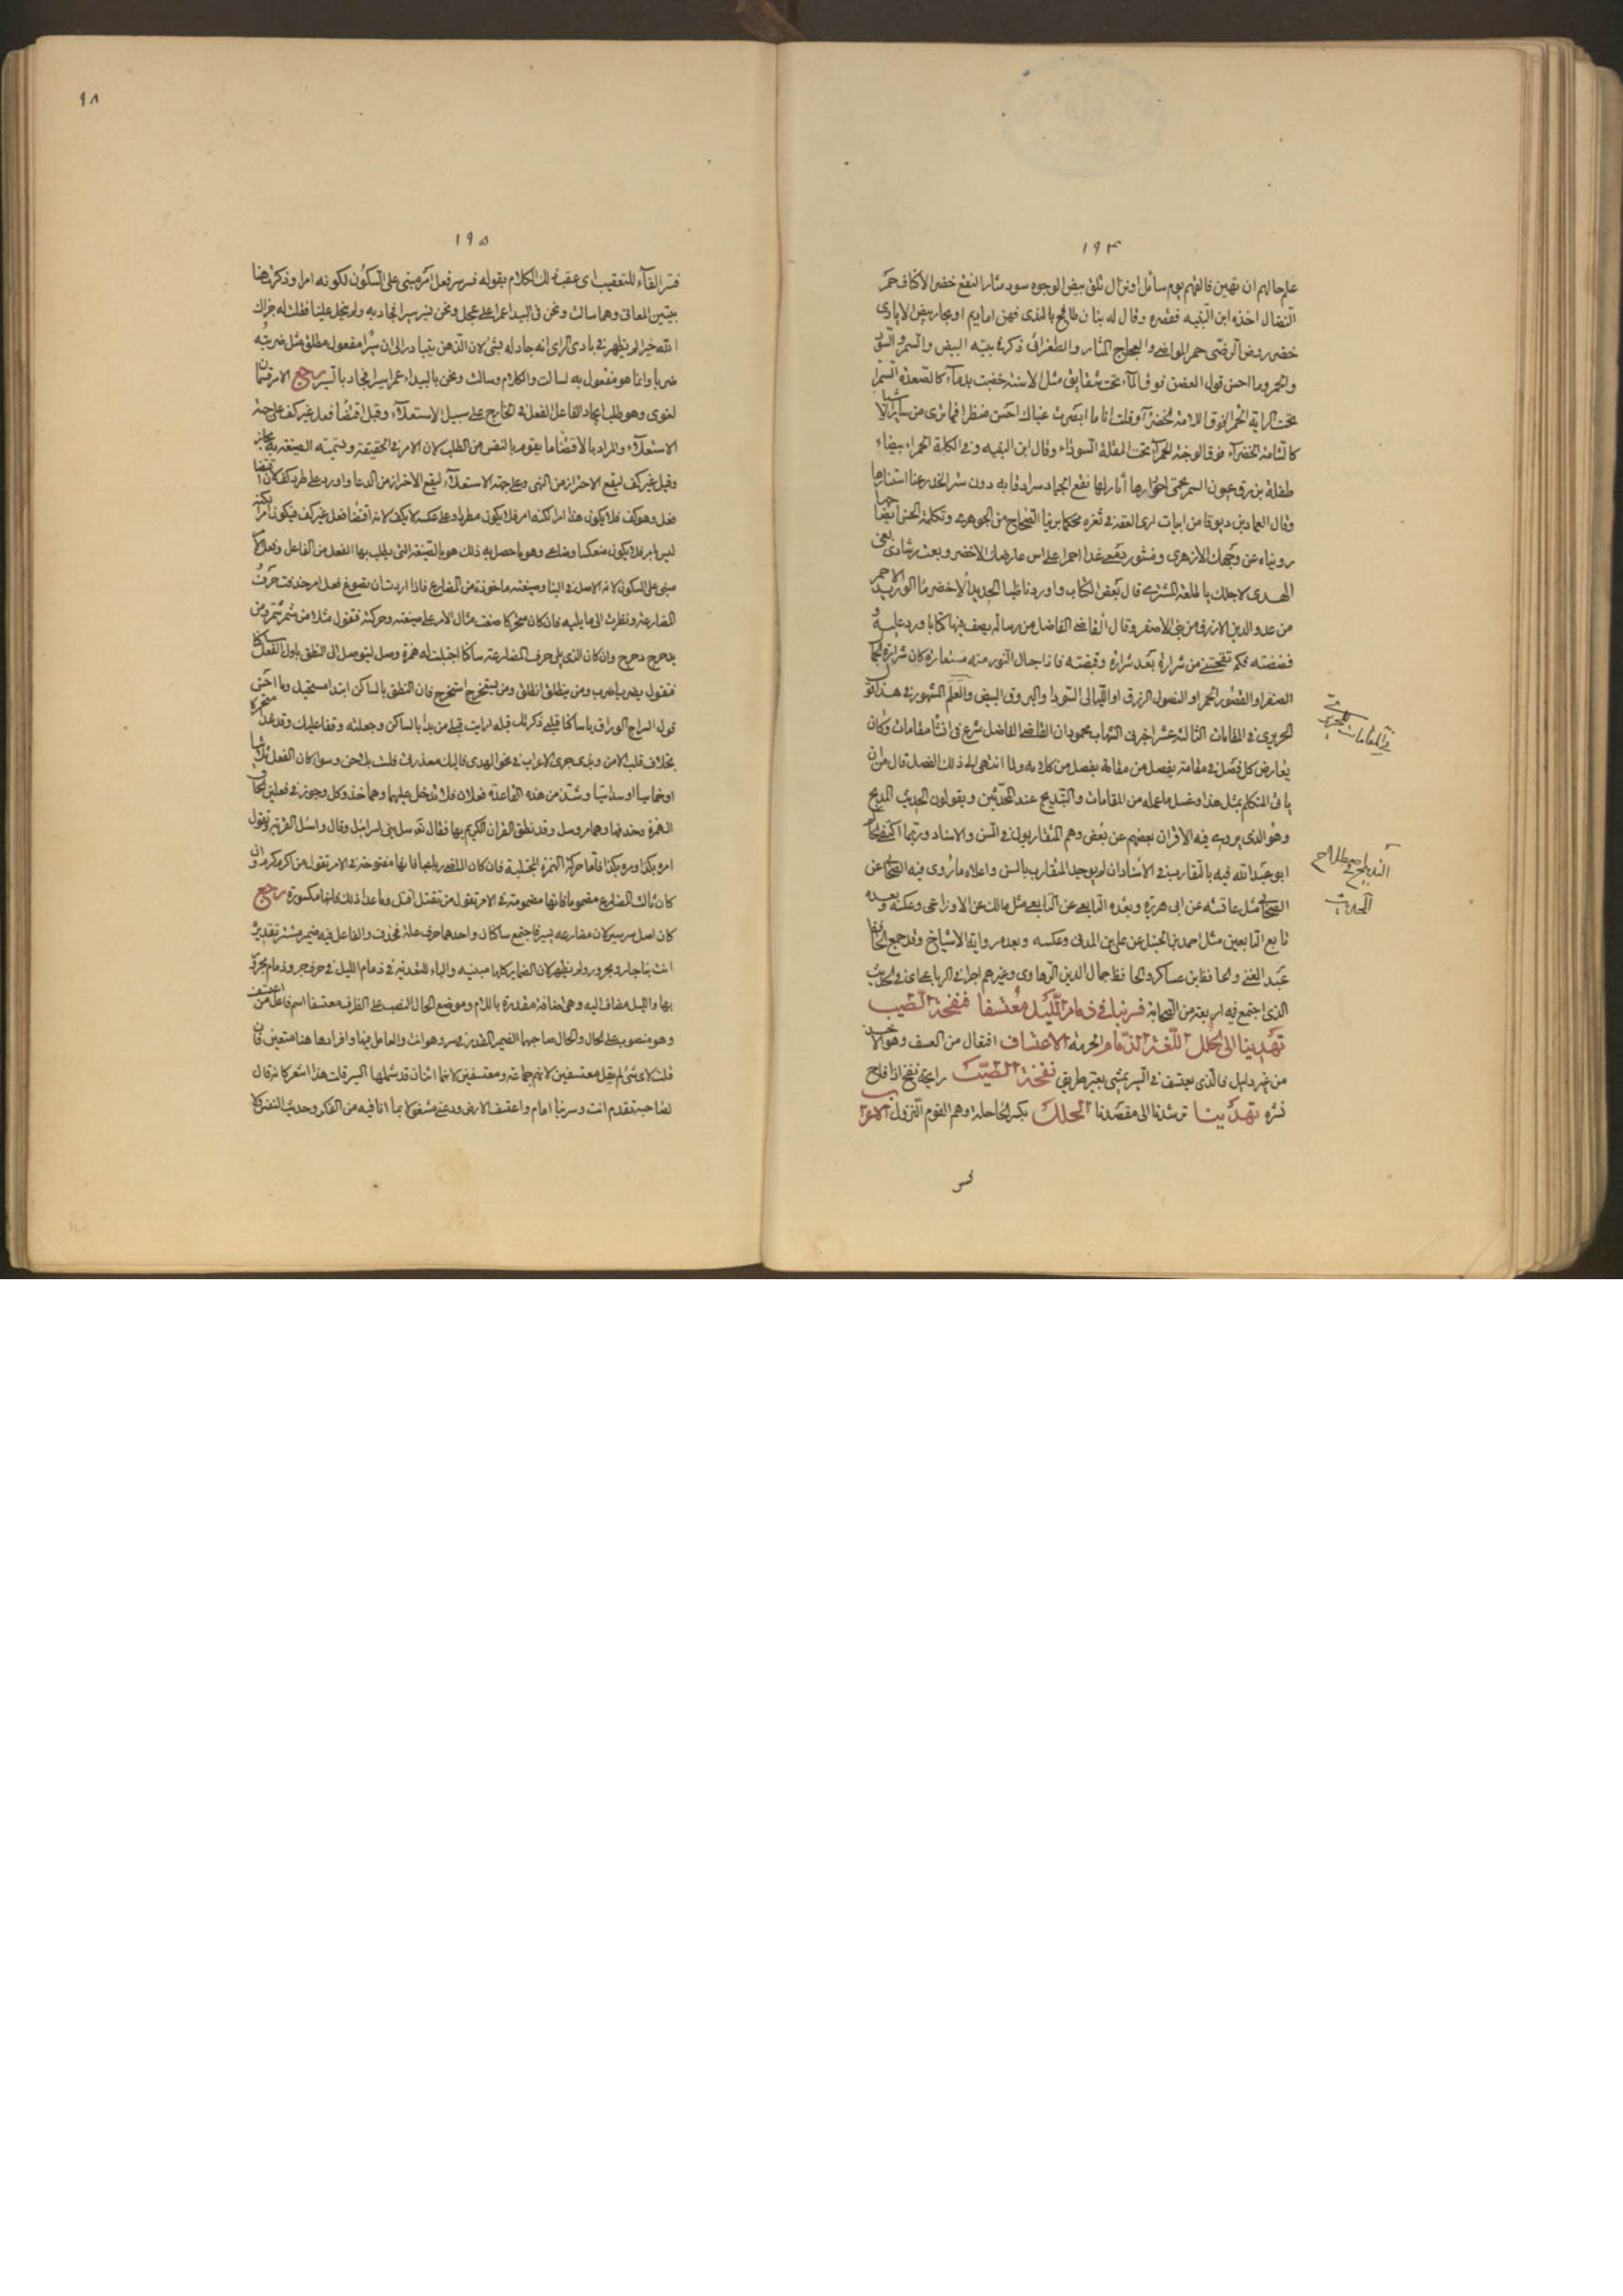 ١٩٤
علم حالهم ان تهين فالقهم يوم سائل او نزال تلق بيض الوجوه سود مثار النقع خضر الاكناف حمر
النضال اخذه ابن النبيه فقصره وقال له بنان طافح بالندى فهن اما ديم او بحار بيض الايادى
خضر روض الرضى حمر المواضى والعجاج المثار والطغرائى ذكر فى بيته البيض والسمر والسود
والحمر وما احسن قول العض فوق الماء تحت شقايق مثل الاسنة خضبت بدماء كالصعدة السمرا
تحت الراية الحمرا فوق اللامة الخضرآ وقلت انا ما ابصرت عيناك احسن منظرا فيما ترى من ساير الاشيا
كالشامة الخضرآء فوق الوجنة الحمرآ تحت المقلة السودآء وقال ابن النبيه وفى الكلة الحمراء بيضاء
طفلة بزرق عيون السمر يحمى احورارها اثار لها نقع الجياد سرادقا به دون ستر الخدر عنا استتارها
وقال العماد بن دبوقا من ابيات ارى العقد فى ثغره محكما يرينا الصحاح من الجوهرى وتكملة الحسن ايضاحها
رويناه عن وجهك الازهرى ومنثور دمعى غدا احمرا على اس عارضك الاخضر وبعت رشادى بغى
الهدى لاجلك يا طلعة المشترى قال بعض الكتاب واوردنا ظبا الحديد الاخضر ماء الوريد الاحمر
من عدو الدين الازرق من بنى الاصفر وقال القاضى الفاضل من رسالة يصف فيها كتابا ورد عليه
ففضته فكم تفتحت من شرارة بعد شرارة وقبضته فاذا جبال النور منه مستعارة كان شرارة
الصفر او القصور الحمر او النصول الزرق او الليالى السودا والبروق البيض والعلم المشهور فى هذا قول
الحريرى فى المقامات الثالثة عشر اخبرنى الشهاب محمود ان القاضى الفاضل شرع فى انشا مقامات وكان
يعارض كل فصل فى مقامة بفصل من مقاله بفصل من كلامه ولما انتهى الى ذلك الفصل قال من اين
ياتى المتكلم بمثل هذا وغسل ما عمله من المقامات والتدبيج عند المحدثين ويقولون الحديث المدبج
وهو الذى يروى فيه الاقران بعضهم عن بعض وهم المتقاربون فى السن والاسناد وربما اكتفى الحاكم
ابو عبد الله فيه بالتقارب فى الاسناد ان لم يوجد المتقارب بالسن واعلاه ما روى فيه الصحابى عن
الصحابى مثل عائشه عن ابى هريرة وبعده التابعى عن التابعى مثل مالك عن الاوزاعى وعكسه وبعده
تابع التابعين مثل احمد بن حنبل عن على بن المدينى وعكسه وبعده رواية الاشياخ وقد جمع الحافظ
عبد الغنى والحافظ ابن عساكر والحافظ جمال الدين الرهاوى وغيرهم اجزا فى الرباعيات فى الحديث
الذى اجتمع فيه اربعة من الصحابة فسر بنا فى ذمام الليل معتسفا فنفحة الطيب
تهدينا الى الحلل اللغة الذمام الحرمة الاعتساف افتعال من العسف وهو الاخذ
من غير دليل فالذى يعتسف فى السير يمشى بغير طريق نفحة الطيب رايحة نفح اذا فاح
نشره تهدينا ترشدنا الى مقصدنا الحلل بكسر الحا حلة وهم القوم النزول الاعراب
فسر
فى المقامات للحريرى
التدبيج اصطلاح
الحديث
٩٨
١٩٥
فسر الفآء للتعقيب اى عقب ذلك الكلام بقوله فسر سر فعل امر مبنى على السكون لكونه امرا وذكرت هنا
بيتين المعانى وهما سالت ونحن فى البيداء عمرا على عجل ونحن نسير سيرا فجاد به ولم يبخل علينا فقلت له جزاك
الله خيرا لم يظهر فى بادى الراى انه جاد له بشى لان الذهن يتبادر الى ان سيرا مفعول مطلق مثل ضربته
ضربا وانما هو مفعول به لسالت والكلام وسالت ونحن بالبيداء عمرا سيرا فجاد بالسير رجع الامر قسمان
لغوى وهو طلب ايجاد الفاعل الفعل فى الخارج على سبيل الاستعلآء وقيل اقتضا فعل غير كف على جهة
الاستعلآء والمراد بالاقتضا ما يقوم بالنفس من الطلب لان الامر فى الحقيقة وتسميته الصيغة به مجاز
وقيل غير كف ليقع الاحتراز من النهى وعلى جهة الاستعلآء ليقع الاحتراز من الدعا واورد على طرده كف لانه اقتضا
فعل وهو كف فلا يكون هذا امرا لكنه امر فلا يكون مطردا وعلى عكسه لا تكف لانه اقتضا فعل غير كف فيكون امرا لكنه
ليس بامر فلا يكون منعكسا وصناعى وهو ما حصل به ذلك هو بالصيغة التى يطلب بها الفعل من الفاعل وفعل الامر
مبنى على السكون لانه الاصل فى البنا وصيغته ماخوذة من المضارع فاذا اردت ان تصوغ فعل امر حذفت حرف
المضارعة ونظرت الى ما يليه فان كان متحركا صغت مثال الامر على صيغته وحركته فتقول مثلا من شمر شمر ومن
يدحرج دحرج وان كان الذى يلى حرف المضارعة ساكنا اجتلبت له همزة وصل ليتوصل الى النطق باول الفعل ساكنا
فتقول يضرب اضرب ومن ينطلق انطلق ومن يستخرج استخرج فان النطق بالساكن ابتدا مستحيل وما احسن
قول السراج الوراق يا ساكنا قلبى ذكرتك قبله ارايت قبلى من بدأ بالساكن وجعلته وقفا عليك وقد غدا متحركا
بخلاف قلب الامن وبذى جرى الاعراب فى نحو الهوى فاليك معذرتى فلست بلاحن وسوا كان الفعل ثلاثيا
او خماسيا او سداسيا وشذ من هذه القاعدة فعلان فلا تدخل عليهما وهما خذ وكل وجوز فى فعلين الحاق
الهمزة وحذفها وهما مر وسل وقد نطق القران الكريم بها فقال تع سل بنى اسرائيل وقال واسئل القرية وتقول
امره بكذا ومره بكذا فاما حركة الهمزة المجتلبة فان كان الماضى رباعيا فانها مفتوحة فى الامر تقول من اكرم اكرم وان
كان ثالث المضارع مضموما فانها مضمومة فى الامر تقول من تقتل اقتل وما عدا ذلك فانها مكسورة رجع
كان اصل سر سير كان مضارعه يسير فاجتمع ساكنان واحدهما حرف علة فحذف والفاعل فيه ضمير مستتر تقديره
انت بنا جار ومجرور ولم يظهر لان الضماير كلها مبنيه والباء للتعدية فى ذمام الليل فى حرف جر وذمام مجرور
بها والليل مضاف اليه وهى اضافة مقدرة باللام وموضع الحال النصب على الظرف معتسفا اسم فاعل من اعتسف
وهو منصوب على الحال والحال صاحبها الضمير المقدر فى سر وهو انت والعامل فيها وافرادها هنا متعين فان
قلت لاى شى لم يقل معتسفين لانهم جماعة ومعتسفين لانهما اثنان قد شملها السير قلت هذا اشعر كانه قال
لصاحبه تقدم انت وسر بنا امام واعتسف الارض ودعنى مشغولا بما انا فيه من الفكر وحديث النفس